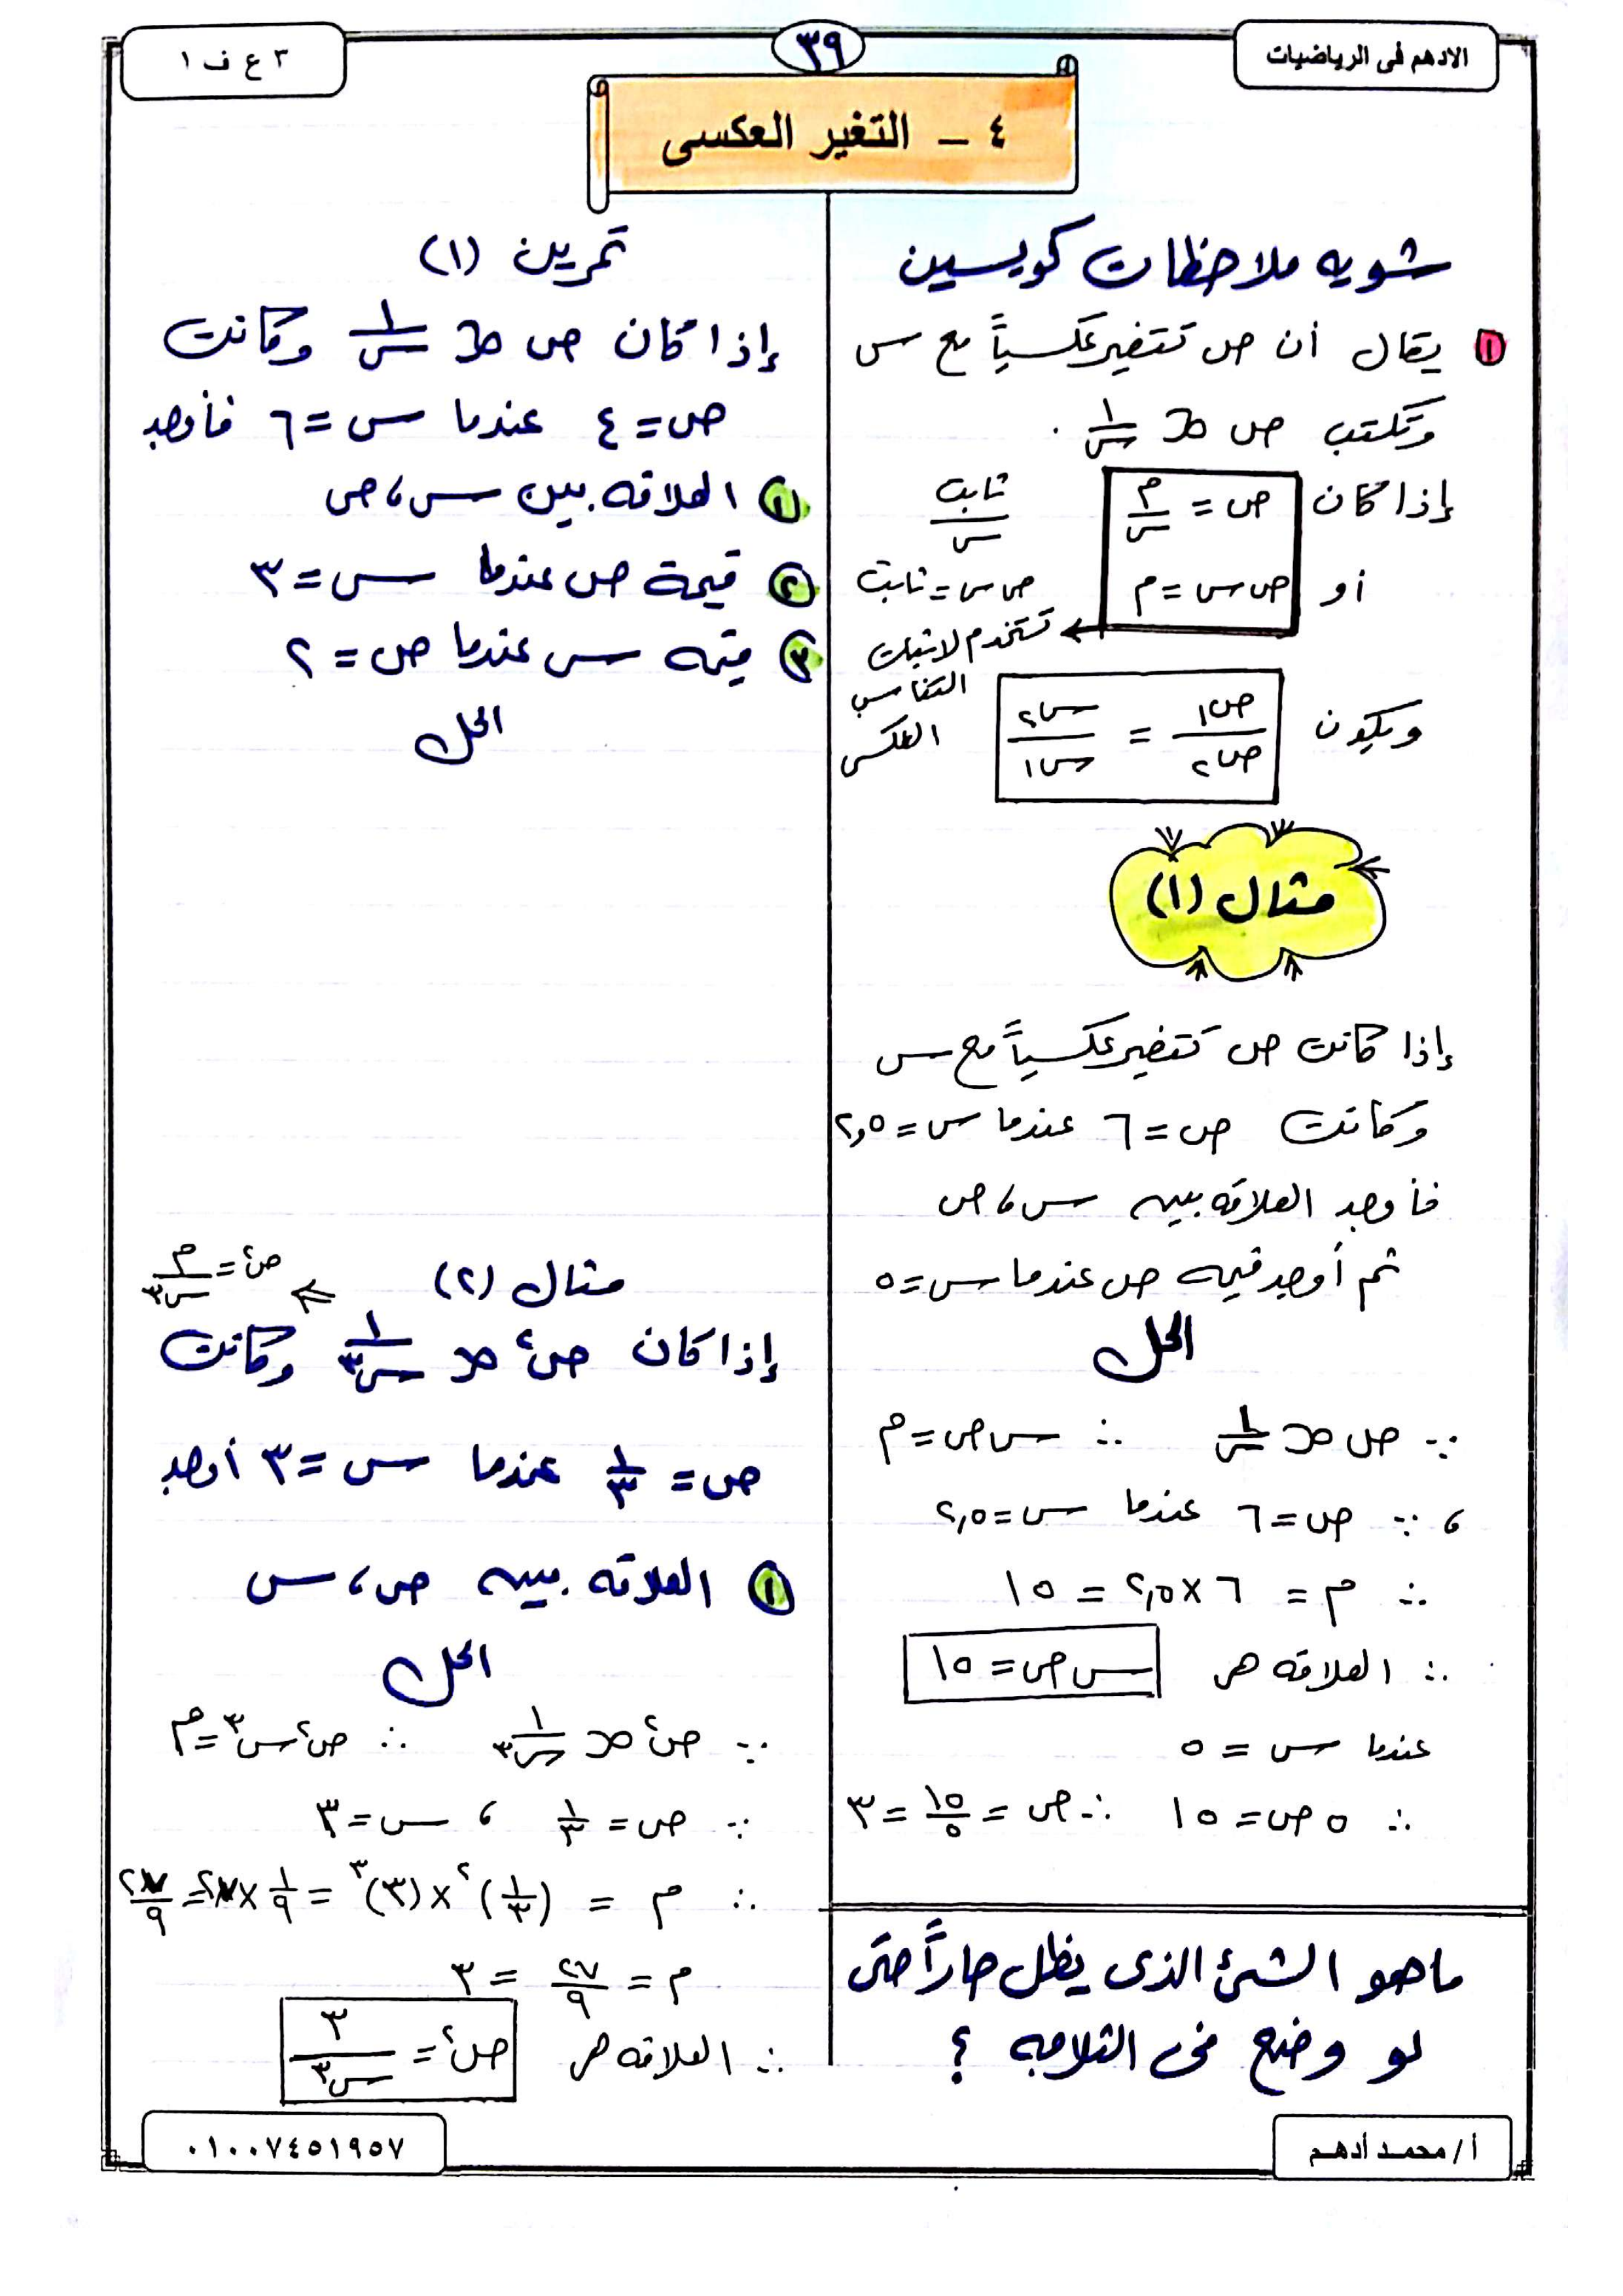 الادهم فى الرياضيات
٣٩
٣ ع ف ١
٤ - التغير العكسى
شويه ملاحظات كويسين
١ يقال أن ص تتغير عكسياً مع س
وتكتب ص ∝ ١/س .
إذا كان ص = م/س ثابت/س
أو ص س = م ص س = ثابت
تستخدم لاثبات
التناسب
العكسى
ويكون ص١/ص٢ = س٢/س١
مثال (١)
إذا كانت ص تتغير عكسياً مع س
وكانت ص = ٦ عندما س = ٢,٥
فأوجد العلاقه بين س ، ص
ثم أوجد قيمه ص عندما س = ٥
الحل
∵ ص ∝ ١/س ∴ س ص = م
، ∵ ص = ٦ عندما س = ٢,٥
∴ م = ٦ × ٢,٥ = ١٥
∴ العلاقه هى س ص = ١٥
عندما س = ٥
∴ ٥ ص = ١٥ ∴ ص = ١٥/٥ = ٣
ماهو الشئ الذى يظل حاراً حتى
لو وضع فى الثلاجه ؟
تمرين (١)
إذا كان ص ∝ ١/س وكانت
ص = ٤ عندما س = ٦ فأوجد
١ العلاقه بين س ، ص
٢ قيمة ص عندما س = ٣
٣ قيمه س عندما ص = ٢
الحل
مثال (٢) ⇐ ص٢ = م/س٣
إذا كان ص٢ ∝ ١/س٣ وكانت
ص = ١/٣ عندما س = ٣ أوجد
١ العلاقه بين ص ، س
الحل
∵ ص٢ ∝ ١/س٣ ∴ ص٢ س٣ = م
∵ ص = ١/٣ ، س = ٣
∴ م = (١/٣)٢ × (٣)٣ = ١/٩ × ٢٧ = ٢٧/٩
م = ٢٧/٩ = ٣
∴ العلاقه هى ص٢ = ٣/س٣
أ / محمد أدهم
٠١٠٠٧٤٥١٩٥٧